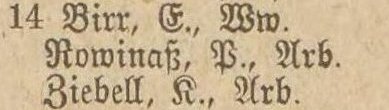 14 Birr, E., Ww.
Rowinaß, P., Arb.
Ziebell, K., Arb.